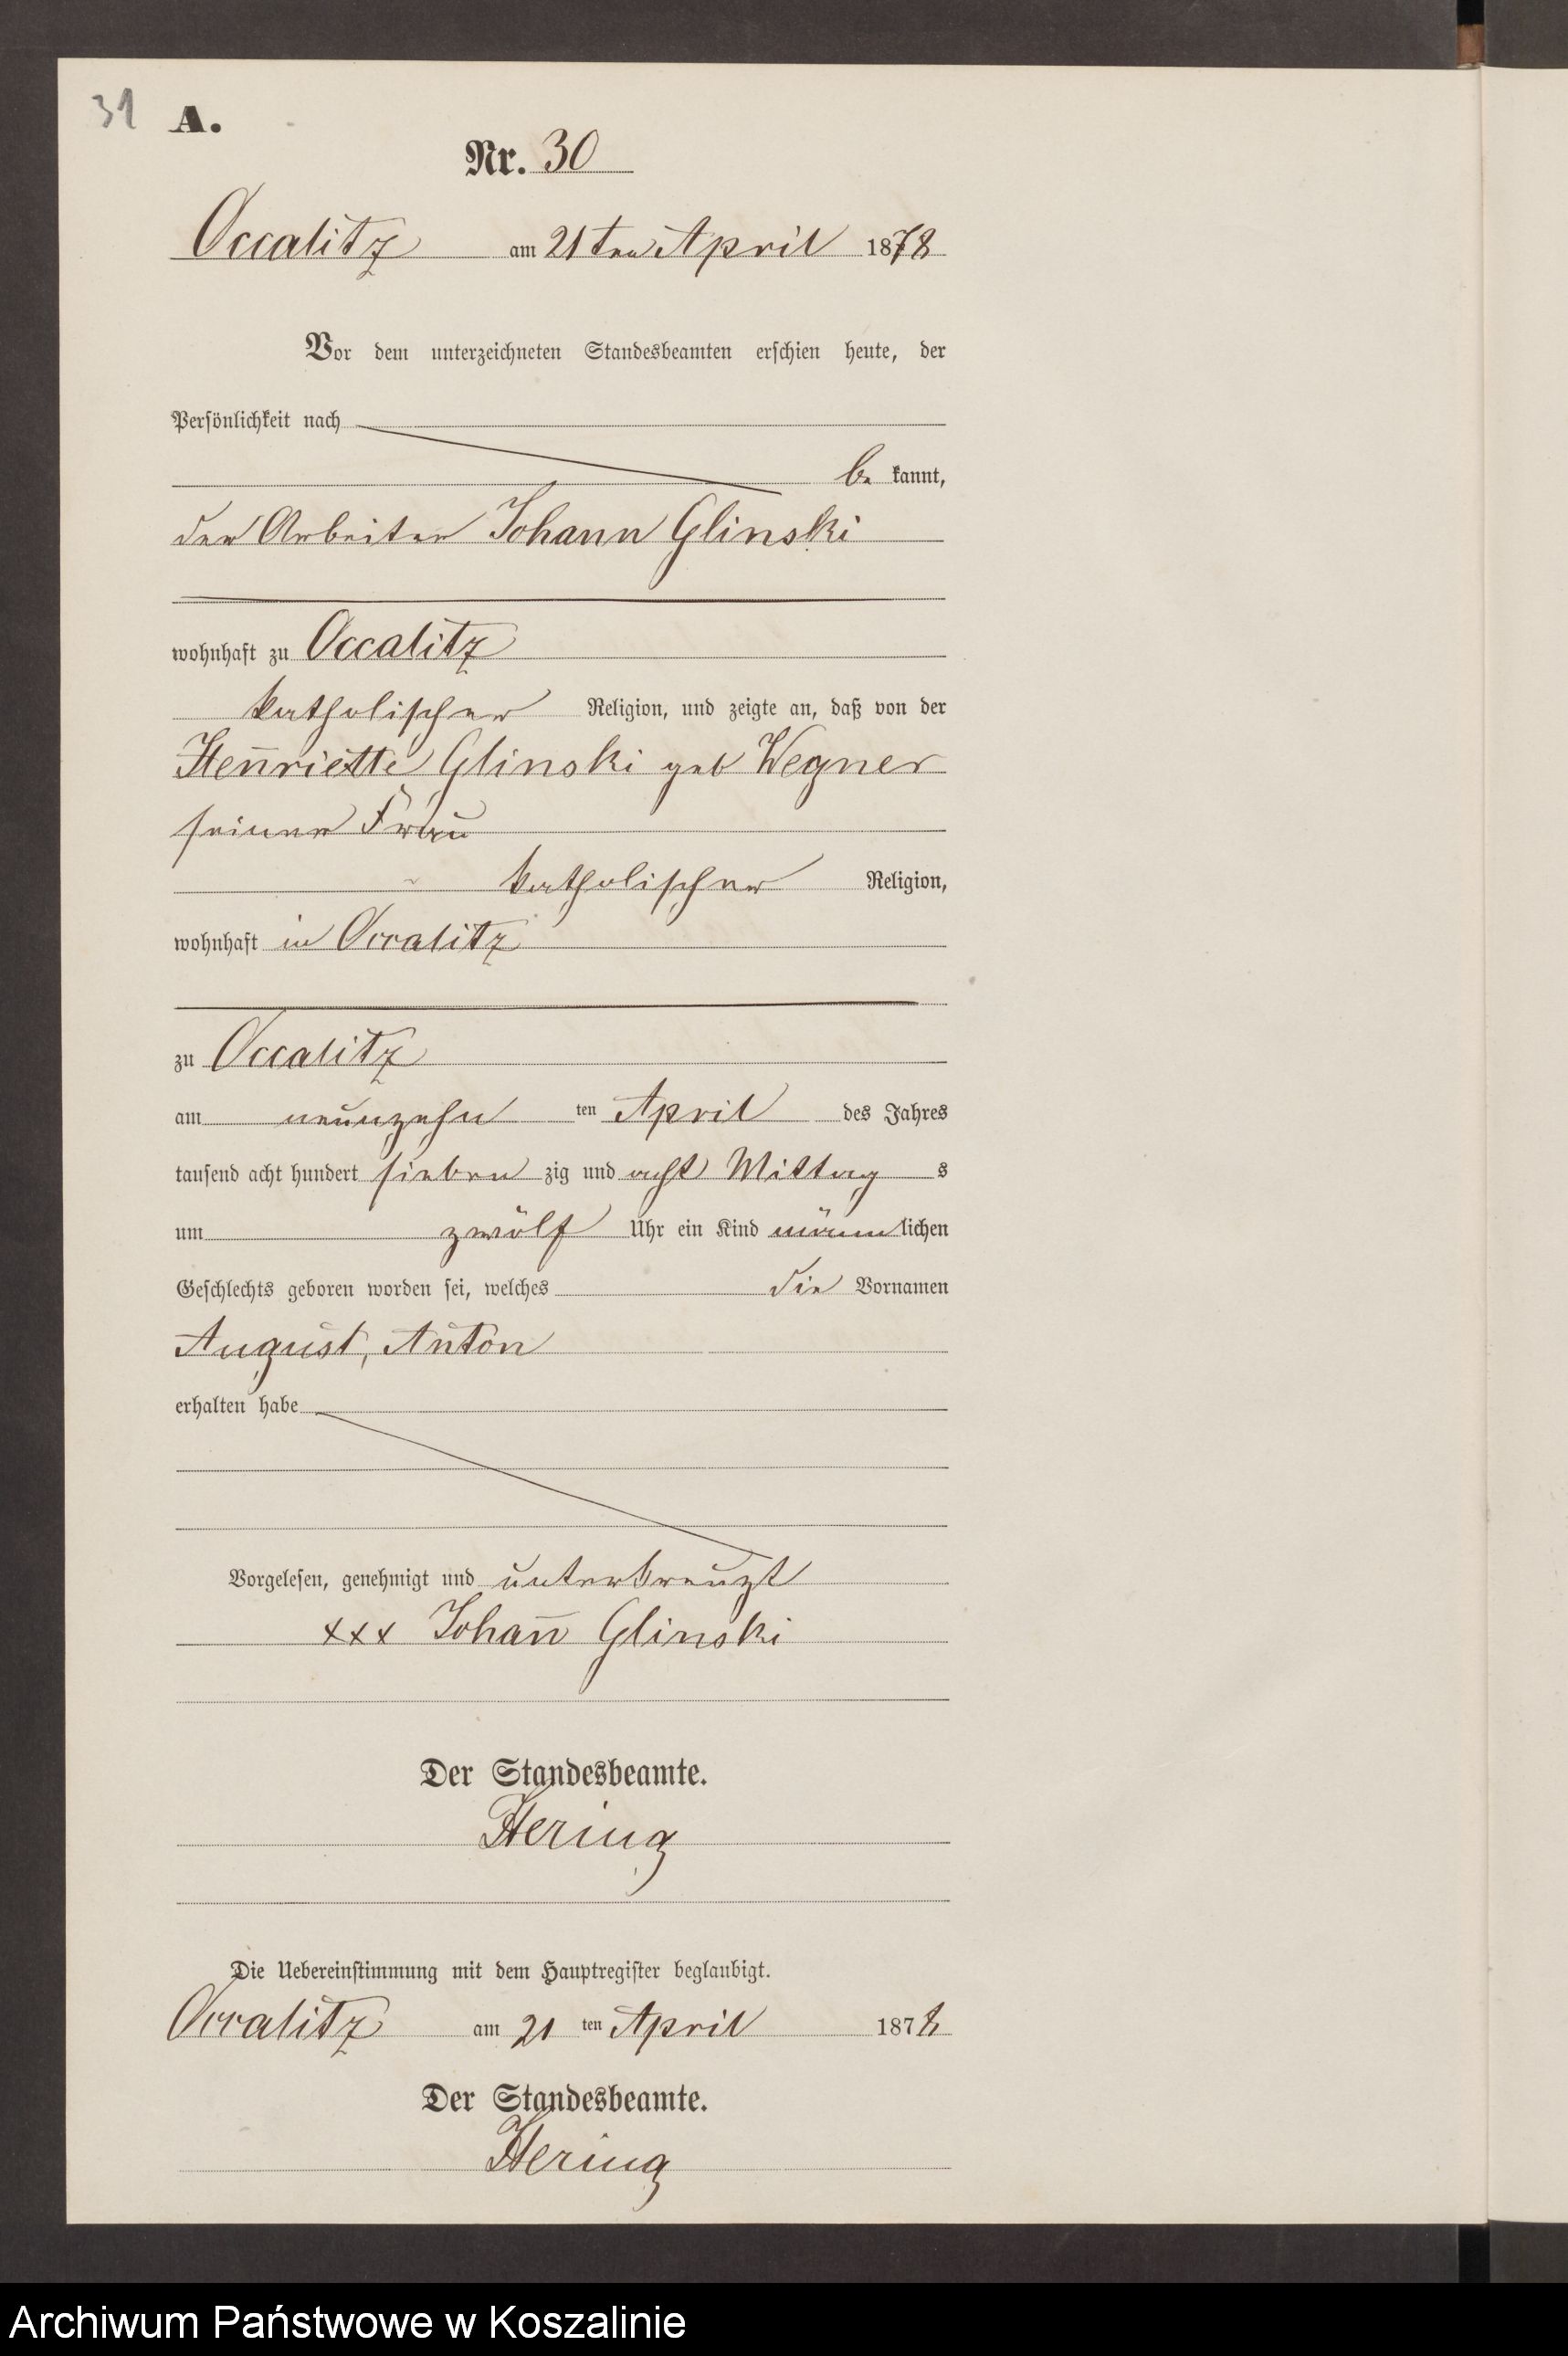 31 A.
Nr. 30
Occalitz am 21ten April 1878
Vor dem unterzeichneten Standesbeamten erschien heute, der
Persönlichkeit nach
be kannt,
der Arbeiter Johann Glinski
wohnhaft zu Occalitz
katholischer Religion, und zeigte an, daß von der
Hen̄riette Glinski geb Wegner
seiner Frau
katholischer Religion,
wohnhaft in Occalitz
zu Occalitz
am neunzehn ten April des Jahres
tausend acht hundert sieben zig und acht Mittag s
um zwölf Uhr ein Kind männlichen
Geschlechts geboren worden sei, welches die Vornamen
August, Anton
erhalten habe
Vorgelesen, genehmigt und unterkreuzt
xxx Johan̄ Glinski
Der Standesbeamte.
Hering
Die Uebereinstimmung mit dem Hauptregister beglaubigt.
Occalitz am 21 ten April 1878
Der Standesbeamte.
Hering
Archiwum Państwowe w Koszalinie